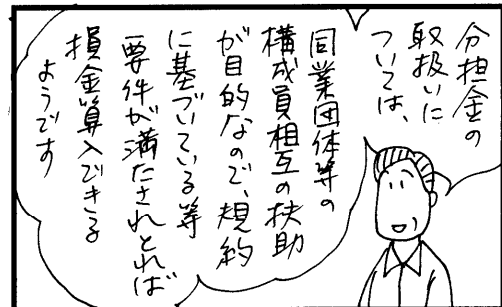 分担金の
取扱いに
ついては、
同業団体等の
構成員相互の扶助
が目的なので、規約
に基づいている等
要件が満たされとれば
損金算入できる
ようです